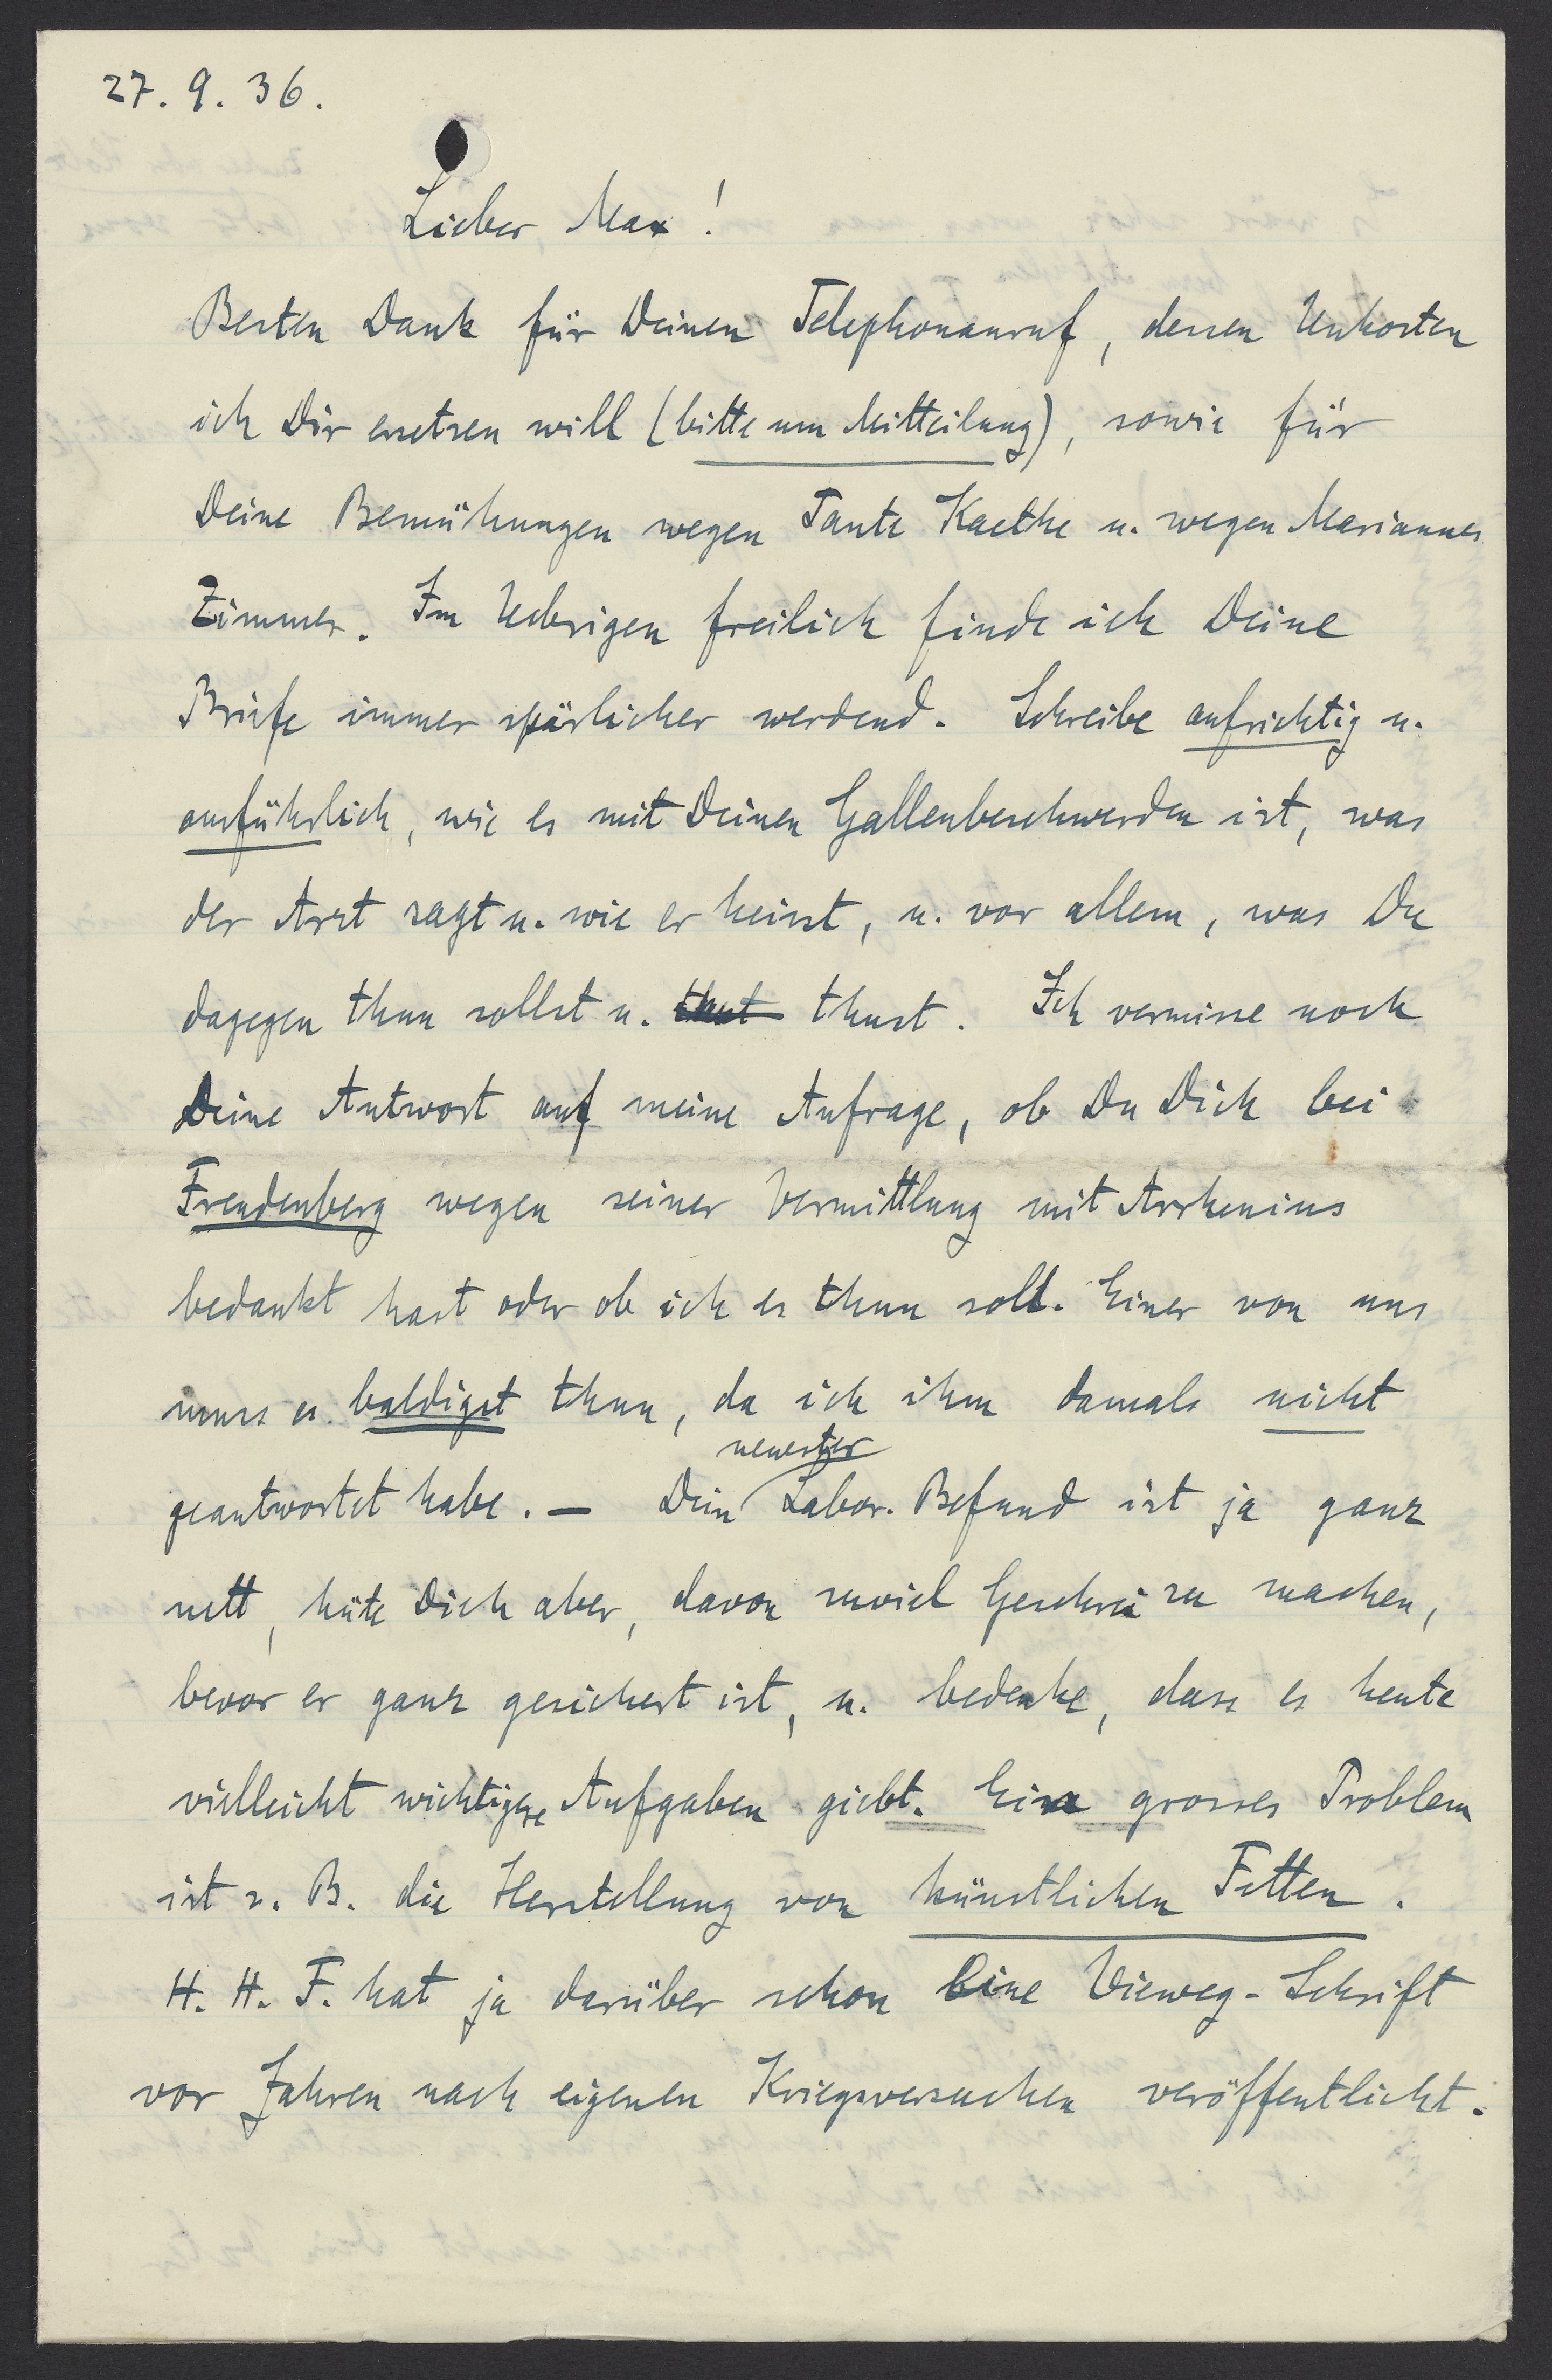 27. 9. 36.
Lieber Max!
Besten Dank für Deinen Telephonanruf, dessen Unkosten
ich Dir ersetzen will (bitte um Mitteilung), sowie für
Deine Bemühungen wegen Tante Kaethe u. wegen Mariannes
Zimmer. Im Uebrigen freilich finde ich Deine
Briefe immer spärlicher werdend. Schreibe aufrichtig u.
ausführlich, wie es mit Deinen Gallenbeschwerden ist, was
der Arzt sagt u. wie er heisst, u. vor allem, was Du
dagegen thun sollst u. thut thust. Ich vermisse noch
Deine Antwort auf meine Anfrage, ob Du Dich bei
Freudenberg wegen seiner Vermittlung mit Arrhenius
bedankt hast oder ob ich es thun soll. Einer von uns
muss es baldigst thun, da ich ihm damals nicht
geantwortet habe. — Dein neuester Labor. Befund ist ja ganz
nett, hüte Dich aber, davon zuviel Geschrei zu machen,
bevor er ganz gesichert ist, u. bedenke, dass es heute
vielleicht wichtigere Aufgaben giebt. Ein grosses Problem
ist z. B. die Herstellung von künstlichen Fetten.
H. H. F. hat ja darüber schon eine Vieweg-Schrift
vor Jahren nach eigenen Kriegsversuchen veröffentlicht.